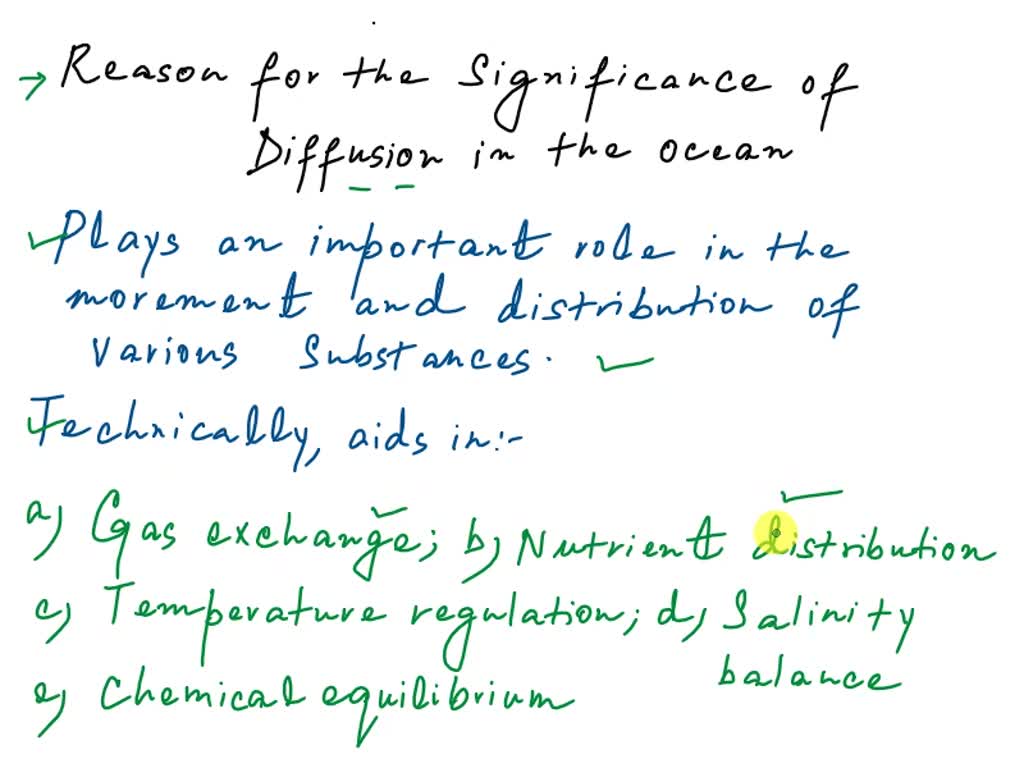 → Reason for the Significance of
Diffusion in the ocean
Plays an important role in the
morement and distribution of
various substances.
Technically, aids in:-
a) Gas exchange; b) Nutrient distribution
c) Temperature regulation; d) Salinity
balance
e) Chemical equilibrium